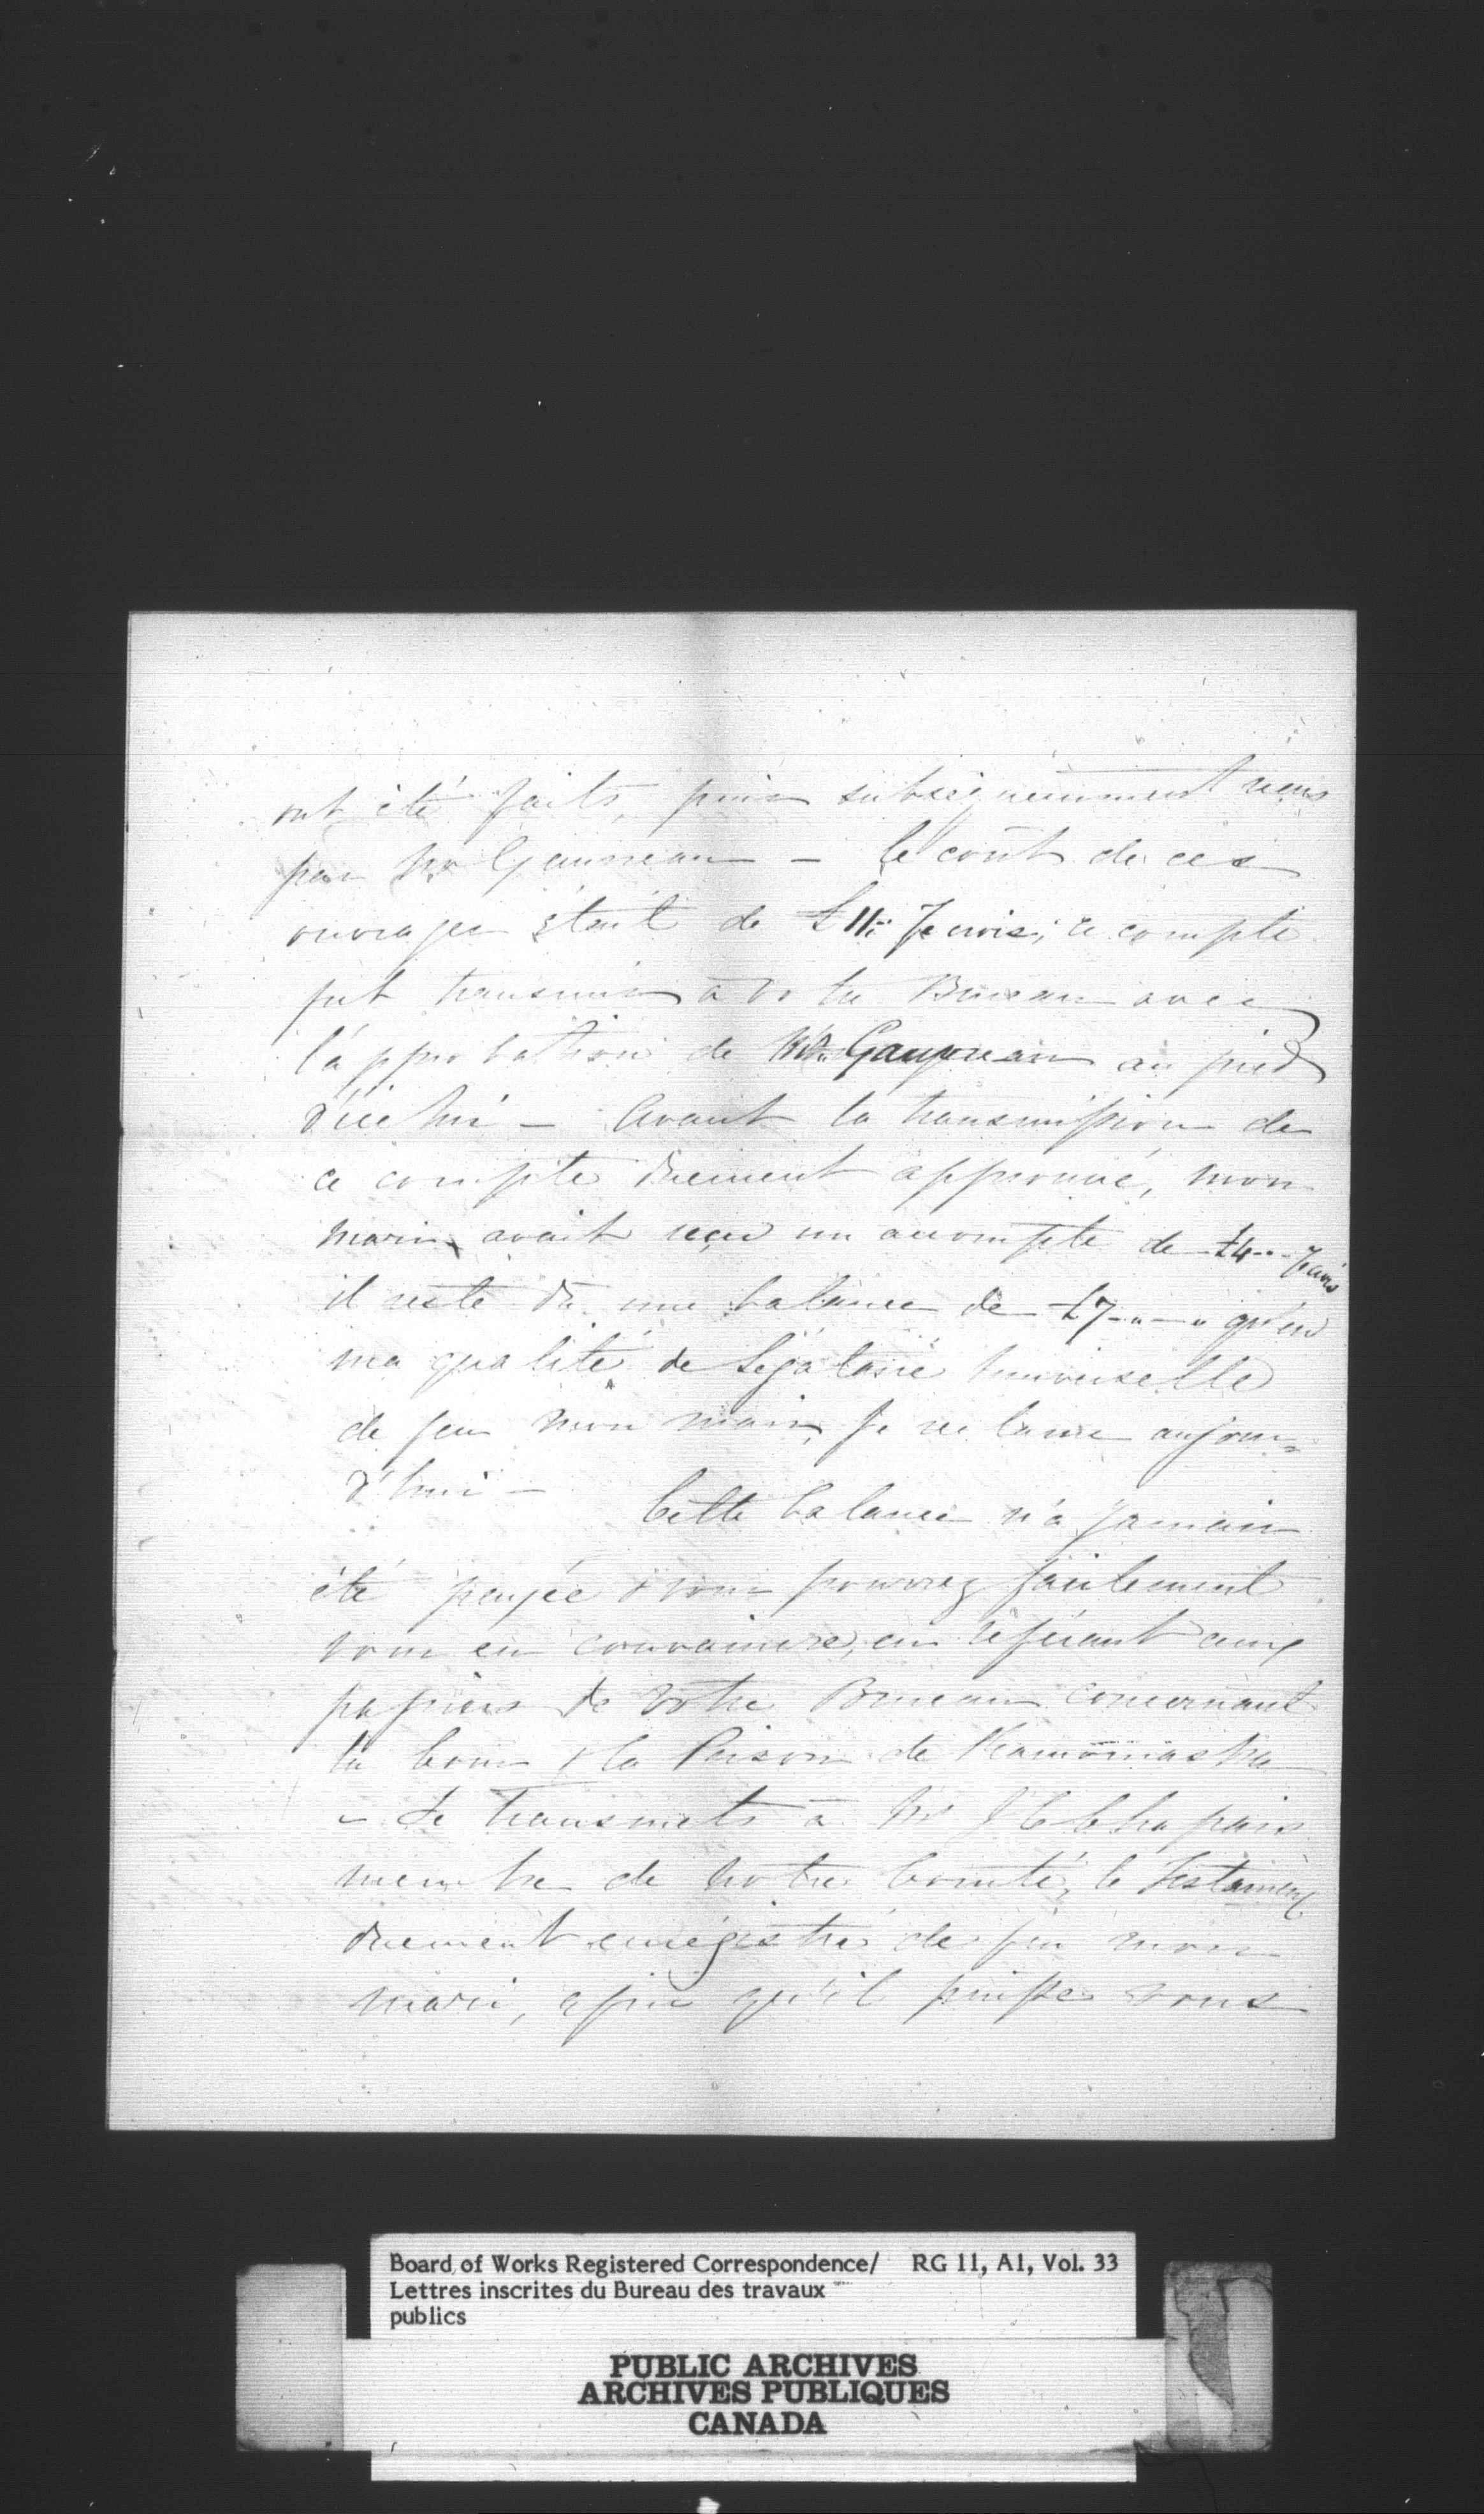 ont été faits, puis subséquemment reçus
par Mr Gauvreau – le coût de ces
ouvrages était de £11.. Je crois; ce compte
fut transmis à votre Bureau avec
l'approbation de Mr. Gauvreau au pied
d'icelui – Avant la transmission de
ce compte duement approuvé, mon
mari avait reçu un accompte de £4.. - Je crois
il reste dû une balance de £7-..-.. qu'en
ma qualité de Légataire Universelle
de feu mon mari, Je réclame aujour=
d'hui –
Cette balance n'a jamais
été payée & vous pourrez facilement
vous en convaincre, en référant aux
papiers de votre Bureau concernant
la Cour & la Prison de Kamouraska
– Je transmets à Mr J C Chapais
membre de notre Comté, le Testament
duement enrégistré de feu mon
mari, afin qu'il puisse vous
Board of Works Registered Correspondence/ RG 11, A1, Vol. 33
Lettres inscrites du Bureau des travaux
publics
PUBLIC ARCHIVES
ARCHIVES PUBLIQUES
CANADA